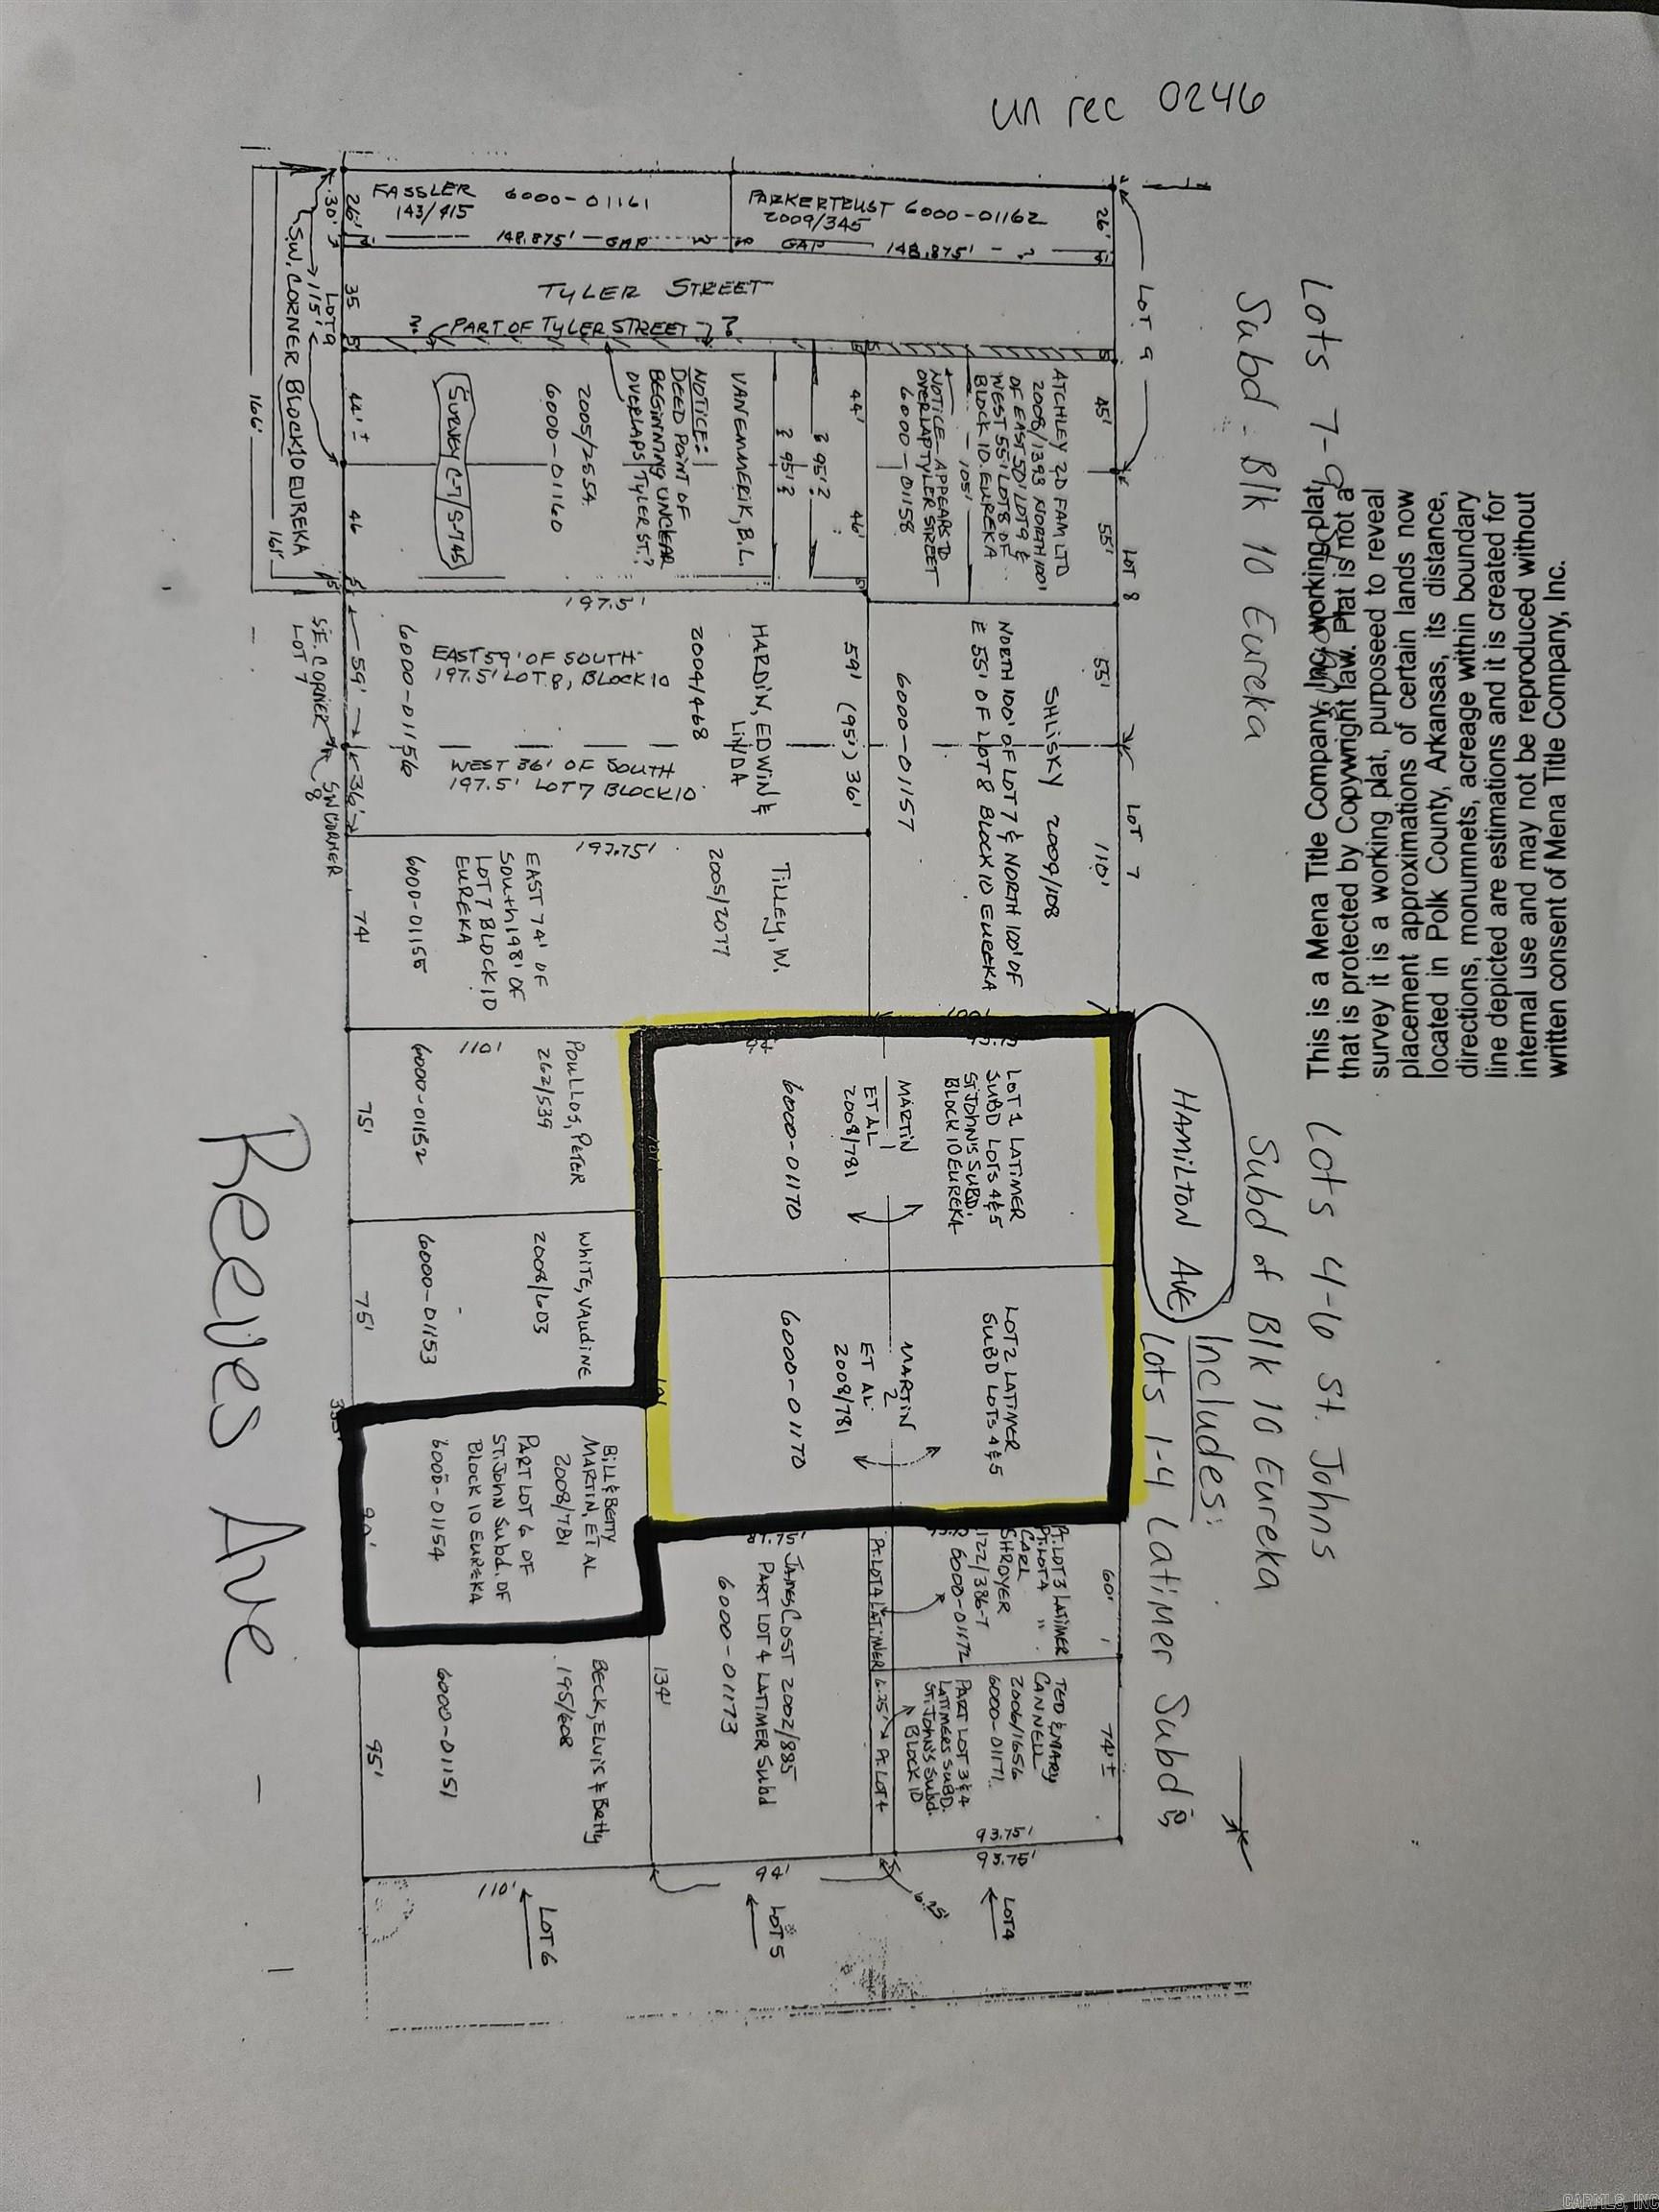 un rec 0246
Lots 7-9
Subd - Blk 10 Eureka
Lots 4-6 St. Johns
Subd of Blk 10 Eureka
Includes:
Lots 1-4 Latimer Subd
This is a Mena Title Company, Inc. working plat,
that is protected by Copywright law. Plat is not a
survey it is a working plat, purposeed to reveal
placement approximations of certain lands now
located in Polk County, Arkansas, its distance,
directions, monumnets, acreage within boundary
line depicted are estimations and it is created for
internal use and may not be reproduced without
written consent of Mena Title Company, Inc.
HAMILTON AVE
LOT 9
LOT 8
LOT 7
26'
45'
55'
55'
110'
60'
74' ±
PARKERTRUST 6000-01162
2009/345
GAP
148.875'
FASSLER 6000-01161
143/415
148.875' - GAP
TYLER STREET
? PART OF TYLER STREET ?
ATCHLEY 2D FAM LTD
2008/1393 NORTH 100'
OF EAST 50' LOT 9 &
WEST 55' LOT 8 OF
BLOCK 10. EUREKA
105'
NOTICE - APPEARS TO
OVERLAP TYLER STREET
6000-01158
44'
46'
? 95' ?
? 95' ?
VANEMMERIK, B.L.
NOTICE:
DEED POINT OF
BEGINNING UNCLEAR
OVERLAPS TYLER ST.?
2005/2554
6000-01160
SURVEY C-7/S-745
197.5'
SHLISKY 2009/108
NORTH 100' OF LOT 7 & NORTH 100' OF
E 55' OF LOT 8 BLOCK 10 EUREKA
6000-01157
59' (95') 36'
HARDIN, EDWIN &
LINDA
2004/468
EAST 59' OF SOUTH
197.5' LOT 8, BLOCK 10
6000-01156
WEST 36' OF SOUTH
197.5' LOT 7 BLOCK 10
197.75'
TILLEY, W.
2005/2077
EAST 74' OF
SOUTH 198' OF
LOT 7 BLOCK 10
EUREKA
6000-01155
LOT 1 LATIMER
SUBD LOTS 4 & 5
ST. JOHN'S SUBD.
BLOCK 10 EUREKA
MARTIN
ET AL
2008/781
6000-01170
LOT 2 LATIMER
SUBD LOTS 4 & 5
MARTIN
2
ET AL
2008/781
6000-01170
POULLOS, PETER
262/539
110'
6000-01152
WHITE, VAUDINE
2008/603
6000-01153
BILL & BETTY
MARTIN, ET AL
2008/781
PART LOT 6 OF
ST. JOHN SUBD. OF
BLOCK 10 EUREKA
6000-01154
PT. LOT 3 LATIMER
PT. LOT 4 "
CARL
SHROYER
122/386-T
6000-01172
TED & MARY
CANNELL
2006/1656
6000-01171
PART LOT 3 & 4
LATIMERS SUBD.
ST. JOHN'S SUBD.
BLOCK 10
93.75'
93.75'
PT. LOT 4 LATIMER 6.25' PT. LOT 4
6.25'
JAMES COST 2002/885
PART LOT 4 LATIMER SUBD
6000-01173
134'
94'
BECK, ELVIS & BETTY
195/608
6000-01151
110'
LOT 4
LOT 5
LOT 6
26'
35
44' ±
46
59'
36'
74'
75'
75'
95'
30'
LOT 9
115'
S.W. CORNER BLOCK 10 EUREKA
161'
166'
S.E. CORNER
LOT 7
SW CORNER
8
Reeves Ave
CARMLS, INC